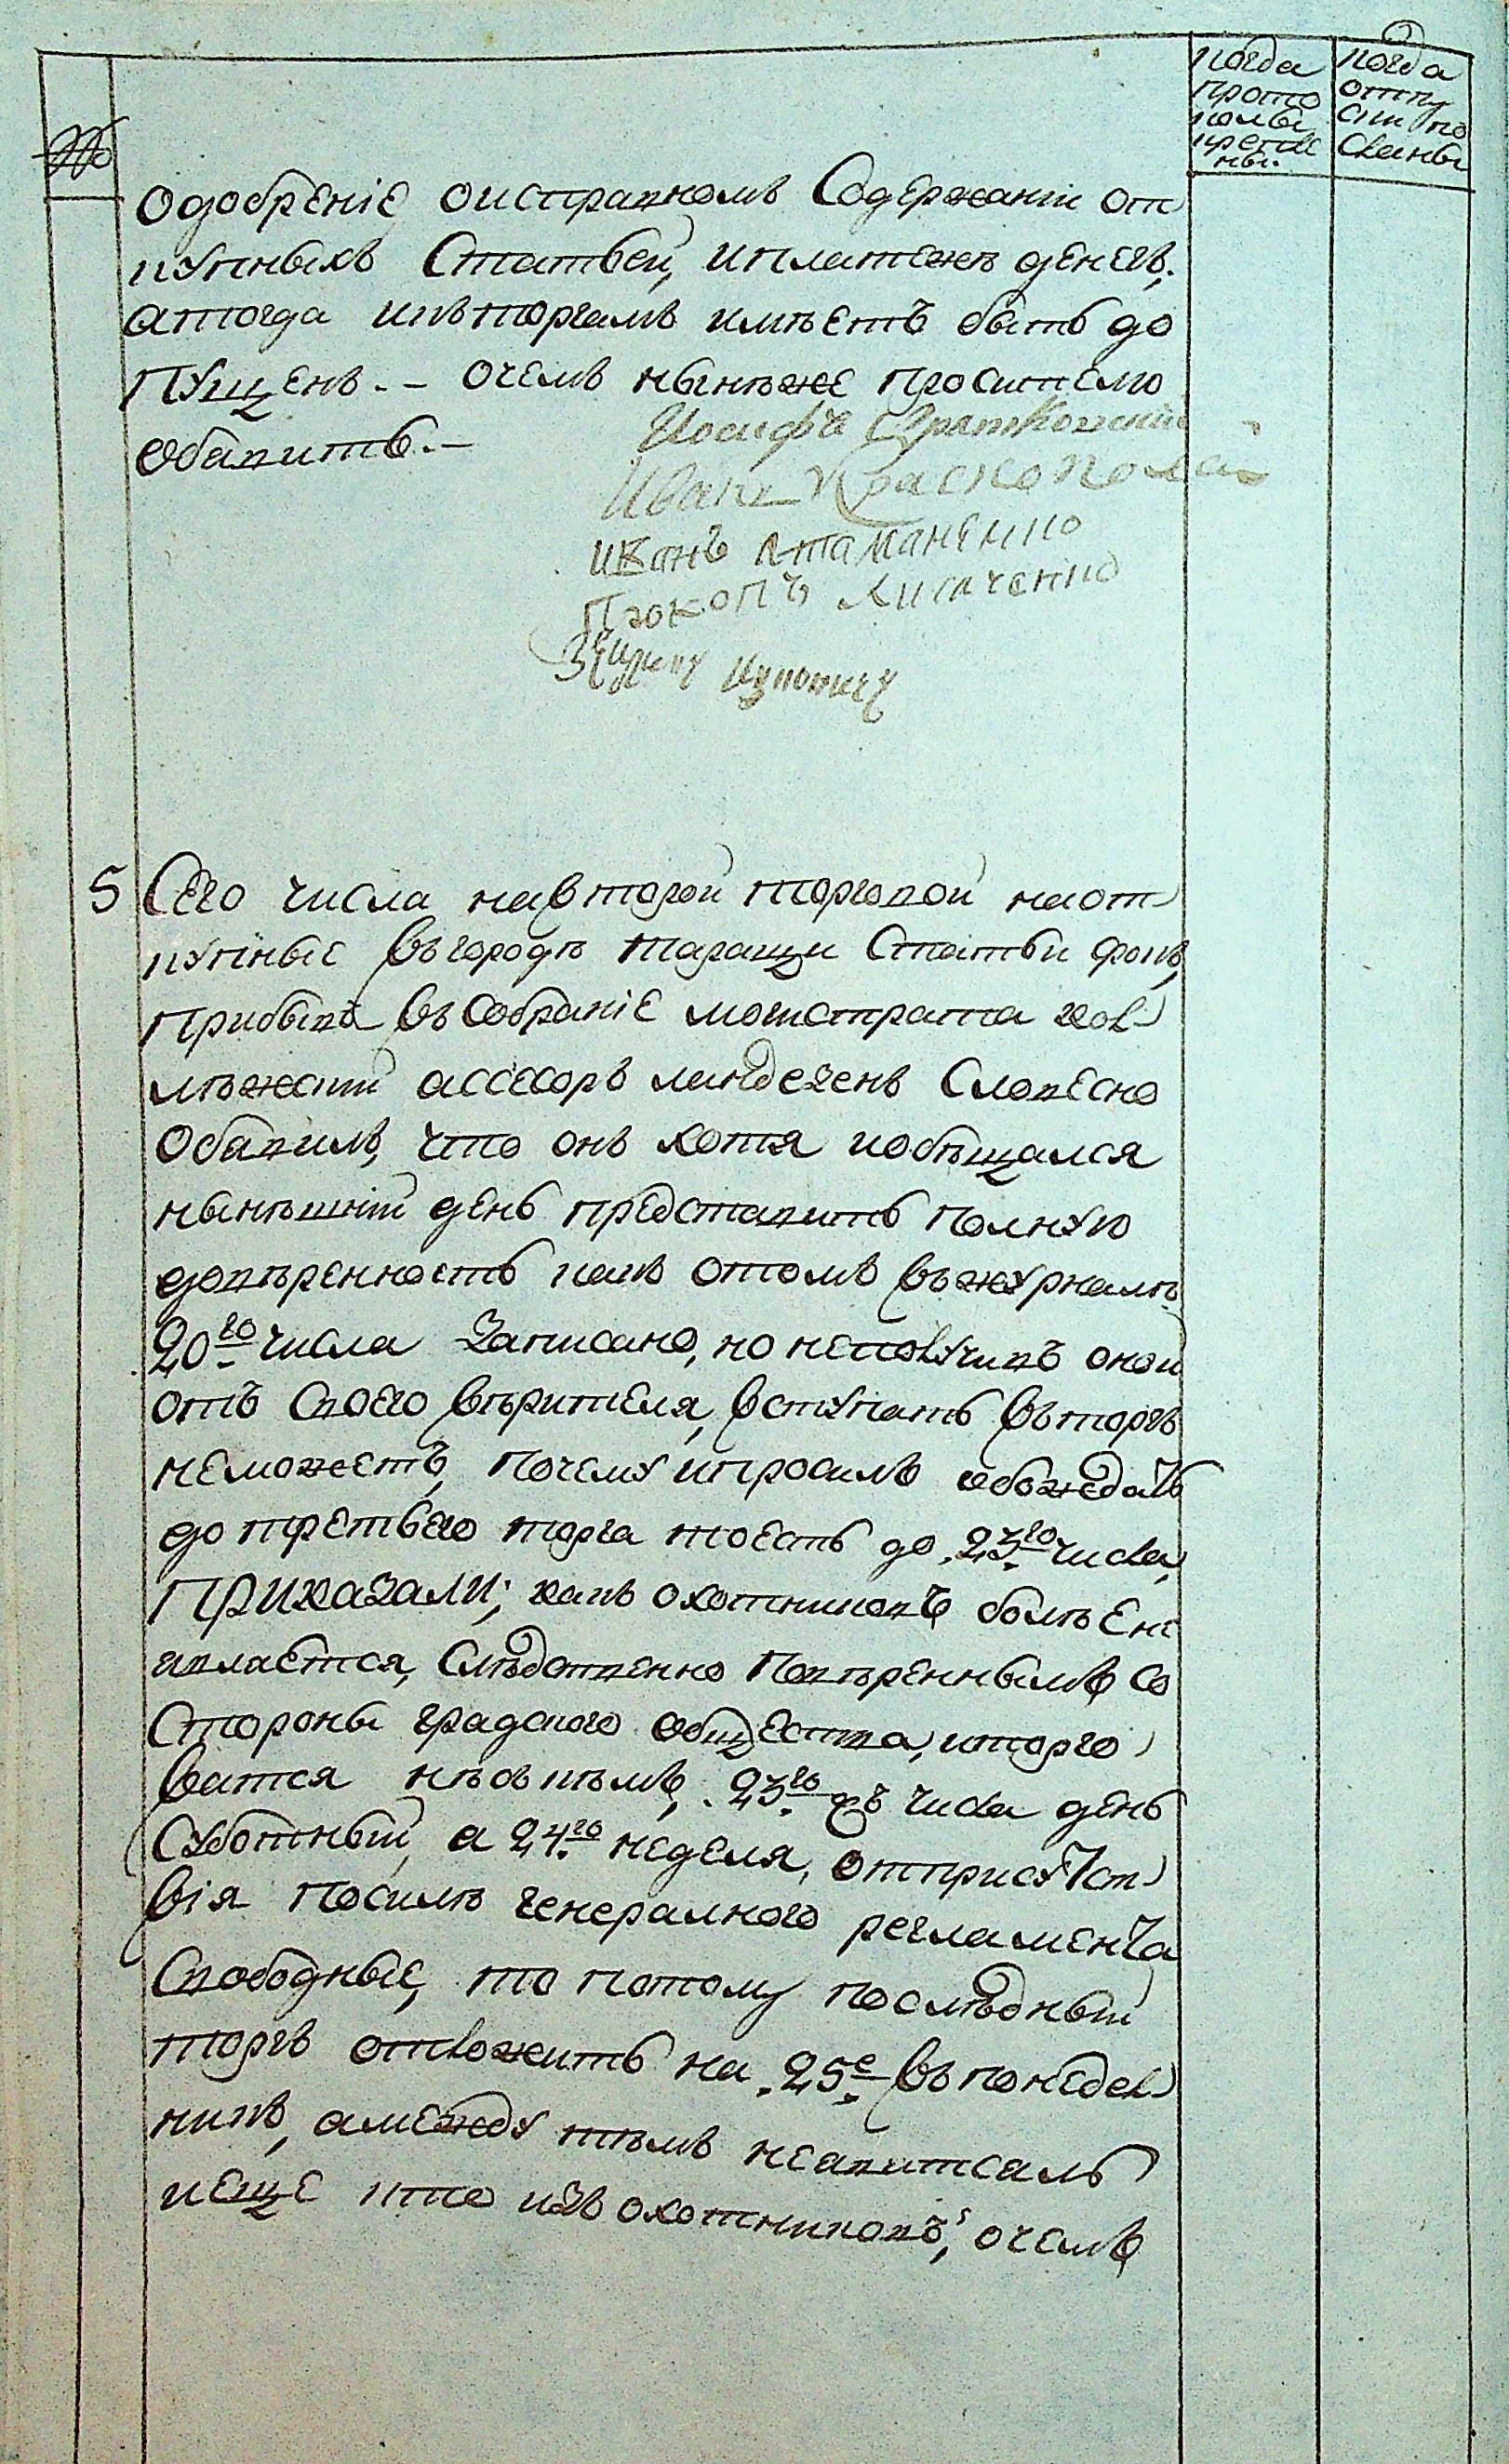 №
когда
прото
колы
крепле
ны.
когда
отпу
ски по
сланы
одобреніе оисправномъ Содержаніи от
купныхъ Статьей, иплатежѣ денегъ,
атогда икъторгамъ имѣетъ быть до
пущенъ. – очемъ нынѣже просителю
обавить. –
Иосифъ
Иванъ Красно
иванъ атаманенко
Прокопъ Лисиченко
5 Сего числа навторой торговой наот
купные въгородѣ таращи Статьи срокъ,
Прибывъ въсобраніе магистрата кол
лѣжскій ассесоръ линдегенъ Словесно
обавилъ, что онъ хотя иобѣщался
нынѣшній день представить полную
довѣренность какъ отомъ въжурналѣ
20го числа Записано, но неполучивъ оной
отъ Своего вѣрителя, вступать въторгъ
неможетъ, почему ипросилъ обождать
до третьего торга тоесть до 23го числа,
ПРИКАЗАЛИ; какъ охотниковъ болѣе не
ивлается, Слѣдственно Повѣреннымъ Со
Стороны градского общества, иторго
ватся нѣсъ кѣмъ, 23го жъ числа день
Суботный, а 24го неделя, отприсутст
вія посилѣ генералного регламента
Свободные, то потому послѣдный
торгъ отложить на 25е въпонедел
никъ, амежду тѣмъ неавитсаль
иеще кто изъ охотниковъ, очемъ